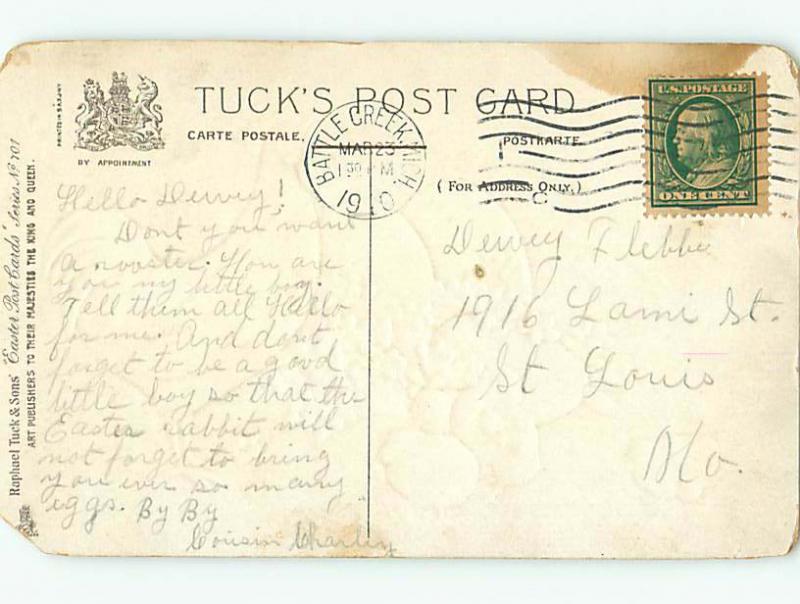 TUCK'S POST CARD
CARTE POSTALE.
POSTKARTE.
( FOR ADDRESS ONLY. )
BY APPOINTMENT
PRINTED IN SAXONY
Raphael Tuck & Sons' "Easter Post Cards" Series No 701
ART PUBLISHERS TO THEIR MAJESTIES THE KING AND QUEEN.
BATTLE CREEK, MICH.
MAR 23
1 30 PM
1910
C
U.S. POSTAGE
ONE CENT
Hello Dewey!
Dont you want
a rooster. How are
you my little boy.
Tell them all Hello
for me. And dont
forget to be a good
little boy so that the
Easter rabbit will
not forget to bring
you ever so many
eggs. By By
Cousin Charley
Dewey Flebbe
1916 Lami St.
St Louis
Mo.